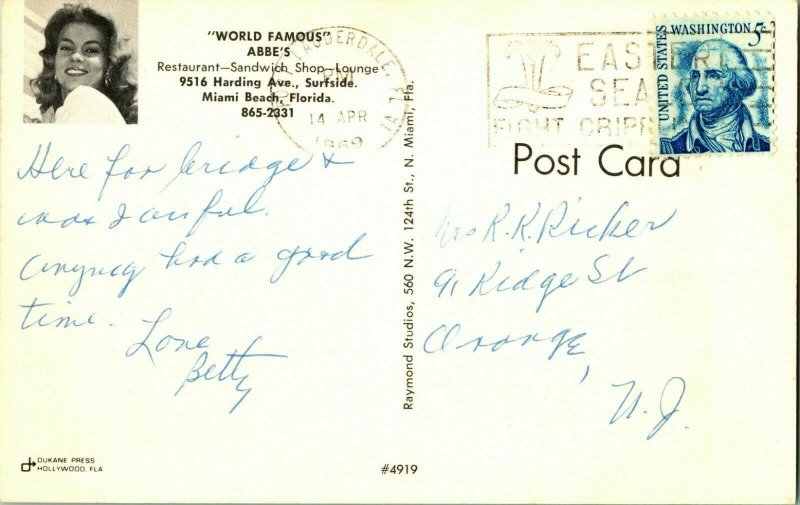 "WORLD FAMOUS"
ABBE'S
Restaurant—Sandwich Shop—Lounge
9516 Harding Ave., Surfside.
Miami Beach, Florida.
865-2331
LAUDERDALE, FLA
PM
14 APR
1969
EASTER
SEA
FIGHT CRIPP
UNITED STATES
WASHINGTON 5c
Post Card
Here for bridge &
was I awful.
had a good
time.
Love
Betty
Raymond Studios, 560 N.W. 124th St., N. Miami, Fla.
Mrs R. K. Ricker
91 Ridge St
Orange,
N.J.
DUKANE PRESS
HOLLYWOOD, FLA
#4919